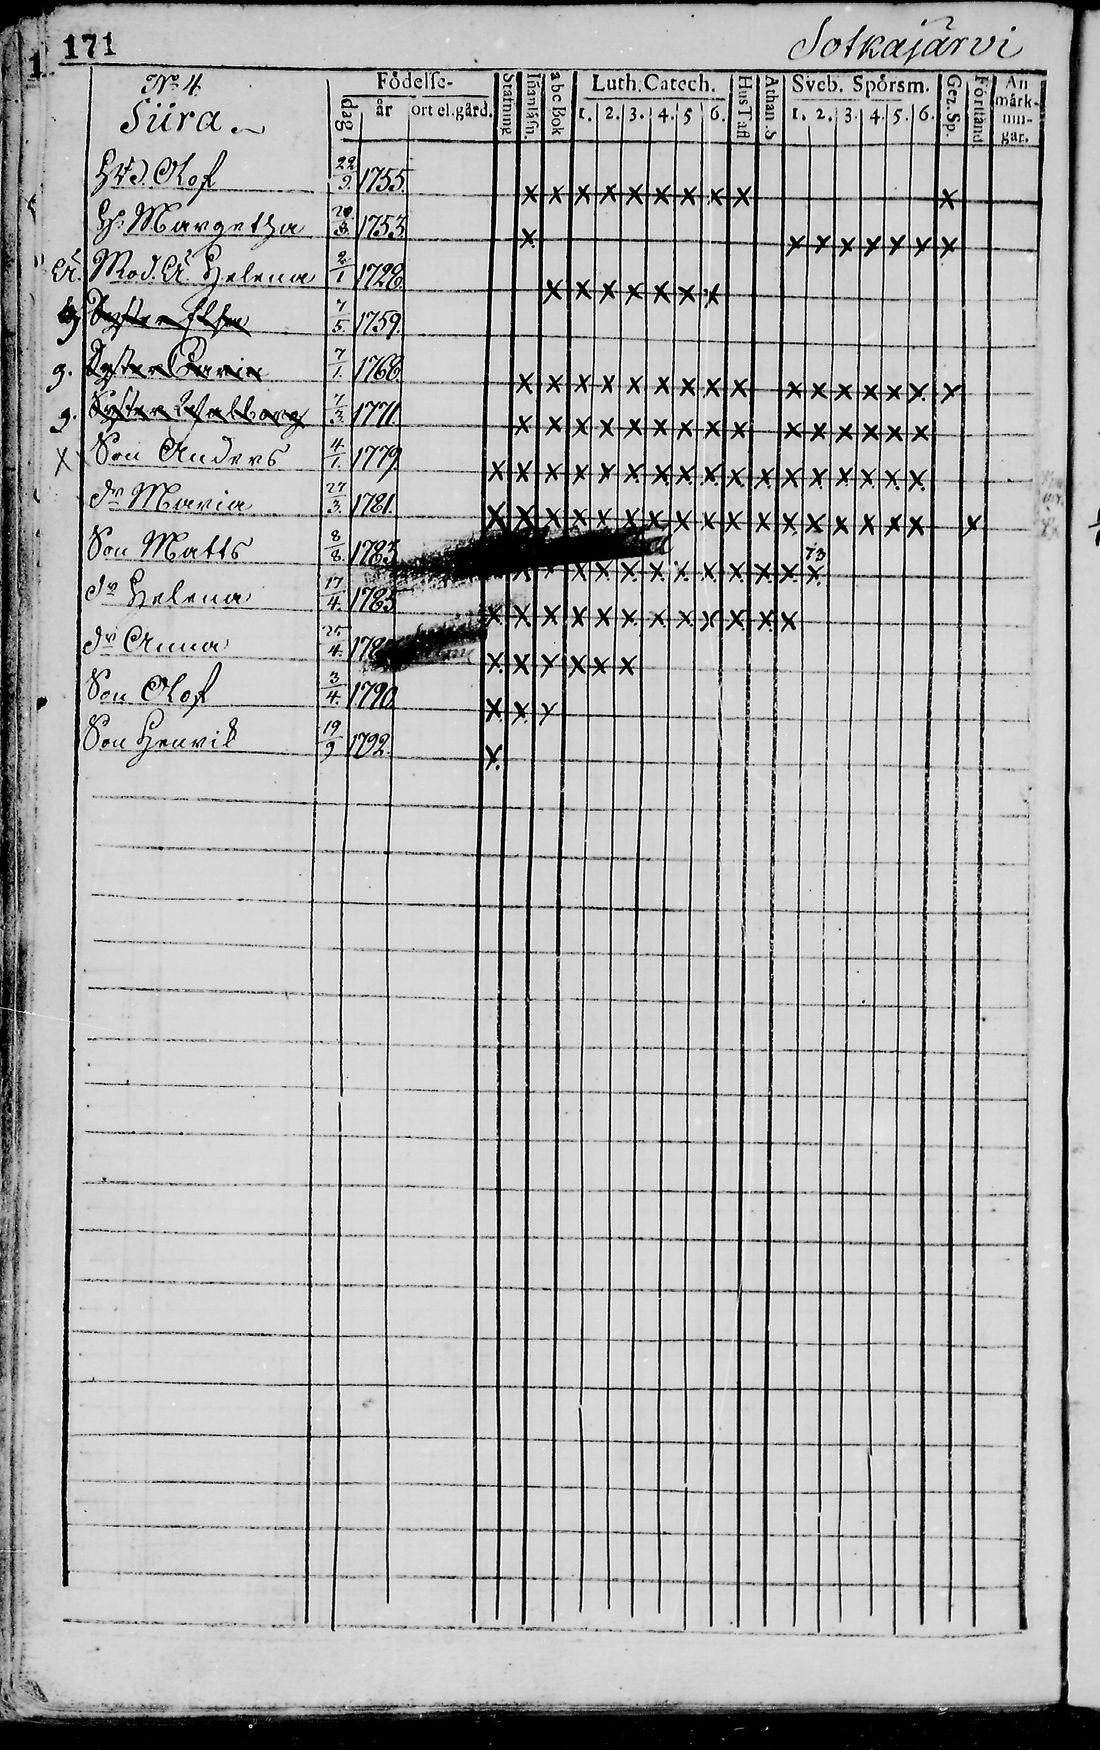 171
Sotkajärvi
No. 4
Siira
Födelse-
dag
år
ort el. gård.
Stafning
Innanläsn.
abc Bok
Luth. Catech.
1. 2. 3. 4. 5 6.
Hus Tafl
Athan. S
Sveb. Spörsm.
1. 2. 3. 4. 5. 6.
Gez. Sp.
Förstånd
An
märk-
nin-
gar.
Olof 22/9. 1755. x x x x x x x x x x
H. Margetha 1753 x x x x x x x x
Mod. Helena 2/1 1728. x x x x x x x
Syster 7/5. 1759.
g. Syster Carin 7/1. 1768. x x x x x x x x x x x x x x x x
g. Syster Walborg 7/3. 1771. x x x x x x x x x x x x x x x
X Son Anders 4/1. 1779. x x x x x x x x x x x x x x x x x
dr Maria 27/3. 1781. x x x x x x x x x x x x x x x x x x
Son Matts 8/8 1783 73 x x x x x x x x x x
dr Helena 17/4. 1785 x x x x x x x x x x x x
dr Anna 25/4. x x x x x x
Son Olof 3/4. 1790. x x x
Son Henrik 19/9 1792. x